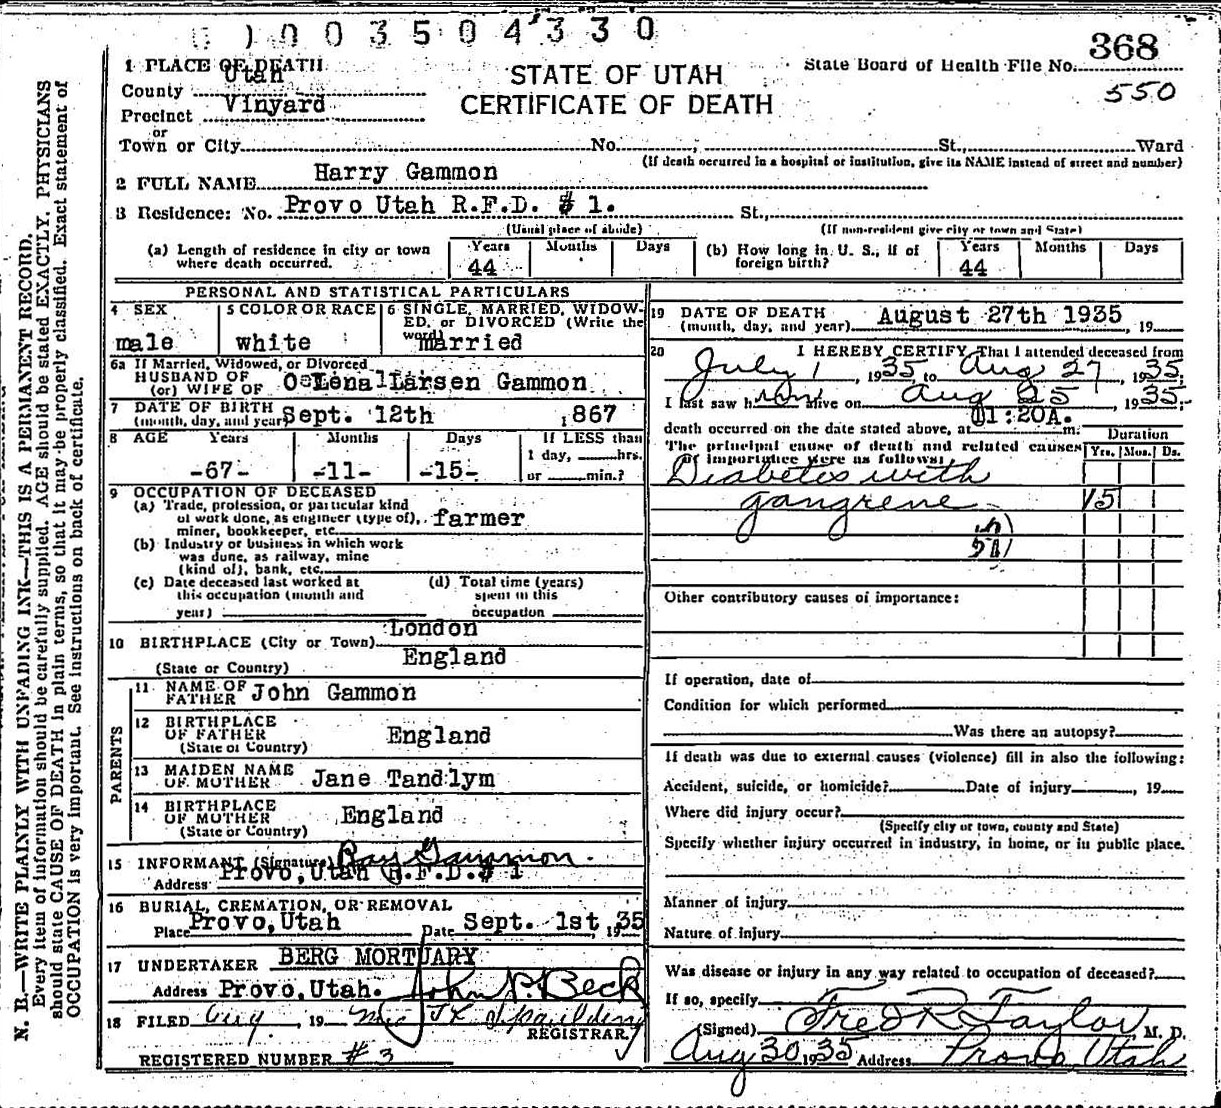 0 0 3 5 0 4 3 3 0
368
State Board of Health File No.
550
STATE OF UTAH
CERTIFICATE OF DEATH
1 PLACE OF DEATH
County Utah
Precinct Vinyard
or
Town or City No. St., Ward
(If death occurred in a hospital or institution, give its NAME instead of street and number)
2 FULL NAME Harry Gammon
3 Residence: No. Provo Utah R.F.D. # 1. St.,
(Usual place of abode) (If non-resident give city or town and State)
(a) Length of residence in city or town where death occurred. Years 44 Months Days
(b) How long in U. S., if of foreign birth? Years 44 Months Days
PERSONAL AND STATISTICAL PARTICULARS
4 SEX male
5 COLOR OR RACE white
6 SINGLE, MARRIED, WIDOWED, or DIVORCED (Write the word) married
6a If Married, Widowed, or Divorced
HUSBAND OF
(or) WIFE OF Larsen Gammon
7 DATE OF BIRTH (month, day, and year) Sept. 12th 1867
8 AGE Years Months Days If LESS than
1 day, hrs.
-67- -11- -15- or min.?
9 OCCUPATION OF DECEASED
(a) Trade, profession, or particular kind
of work done, as engineer (type of), farmer
miner, bookkeeper, etc.
(b) Industry or business in which work
was done, as railway, mine
(kind of), bank, etc.
(c) Date deceased last worked at
this occupation (month and
year)
(d) Total time (years)
spent in this
occupation
10 BIRTHPLACE (City or Town) London
(State or Country) England
PARENTS
11 NAME OF FATHER John Gammon
12 BIRTHPLACE OF FATHER England
(State or Country)
13 MAIDEN NAME OF MOTHER Jane Tandlym
14 BIRTHPLACE OF MOTHER England
(State or Country)
15 INFORMANT (Signature) Ray Gammon
Address Provo, Utah R.F.D.# 1
16 BURIAL, CREMATION, OR REMOVAL
Place Provo, Utah Date Sept. 1st, 1935
17 UNDERTAKER BERG MORTUARY
Address Provo, Utah. John P. Beck
18 FILED Aug, 19 Spaulding
REGISTRAR
REGISTERED NUMBER # 3
19 DATE OF DEATH
(month, day, and year) August 27th 1935, 19
20 I HEREBY CERTIFY That I attended deceased from
July 1, 1935 to Aug 27, 1935.
I last saw him alive on Aug 25, 1935.
death occurred on the date stated above, at 11:20A. m.
The principal cause of death and related causes
of importance were as follows:
Duration
Yrs. Mos. Ds.
Diabetes with
gangrene 15
Other contributory causes of importance:
If operation, date of
Condition for which performed
Was there an autopsy?
If death was due to external causes (violence) fill in also the following:
Accident, suicide, or homicide? Date of injury, 19
Where did injury occur?
(Specify city or town, county and State)
Specify whether injury occurred in industry, in home, or in public place.
Manner of injury
Nature of injury
Was disease or injury in any way related to occupation of deceased?
If so, specify
(Signed) Fred R Taylor M. D.
Aug 30 1935 Address Provo, Utah
N. B.—WRITE PLAINLY WITH UNFADING INK—THIS IS A PERMANENT RECORD.
Every item of information should be carefully supplied. AGE should be stated EXACTLY. PHYSICIANS
should state CAUSE OF DEATH in plain terms, so that it may be properly classified. Exact statement of
OCCUPATION is very important. See instructions on back of certificate.